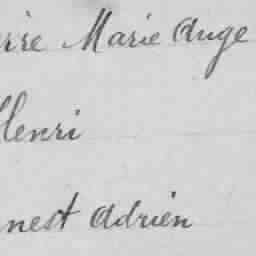 erre Marie Ange
Henri
nest Adrien